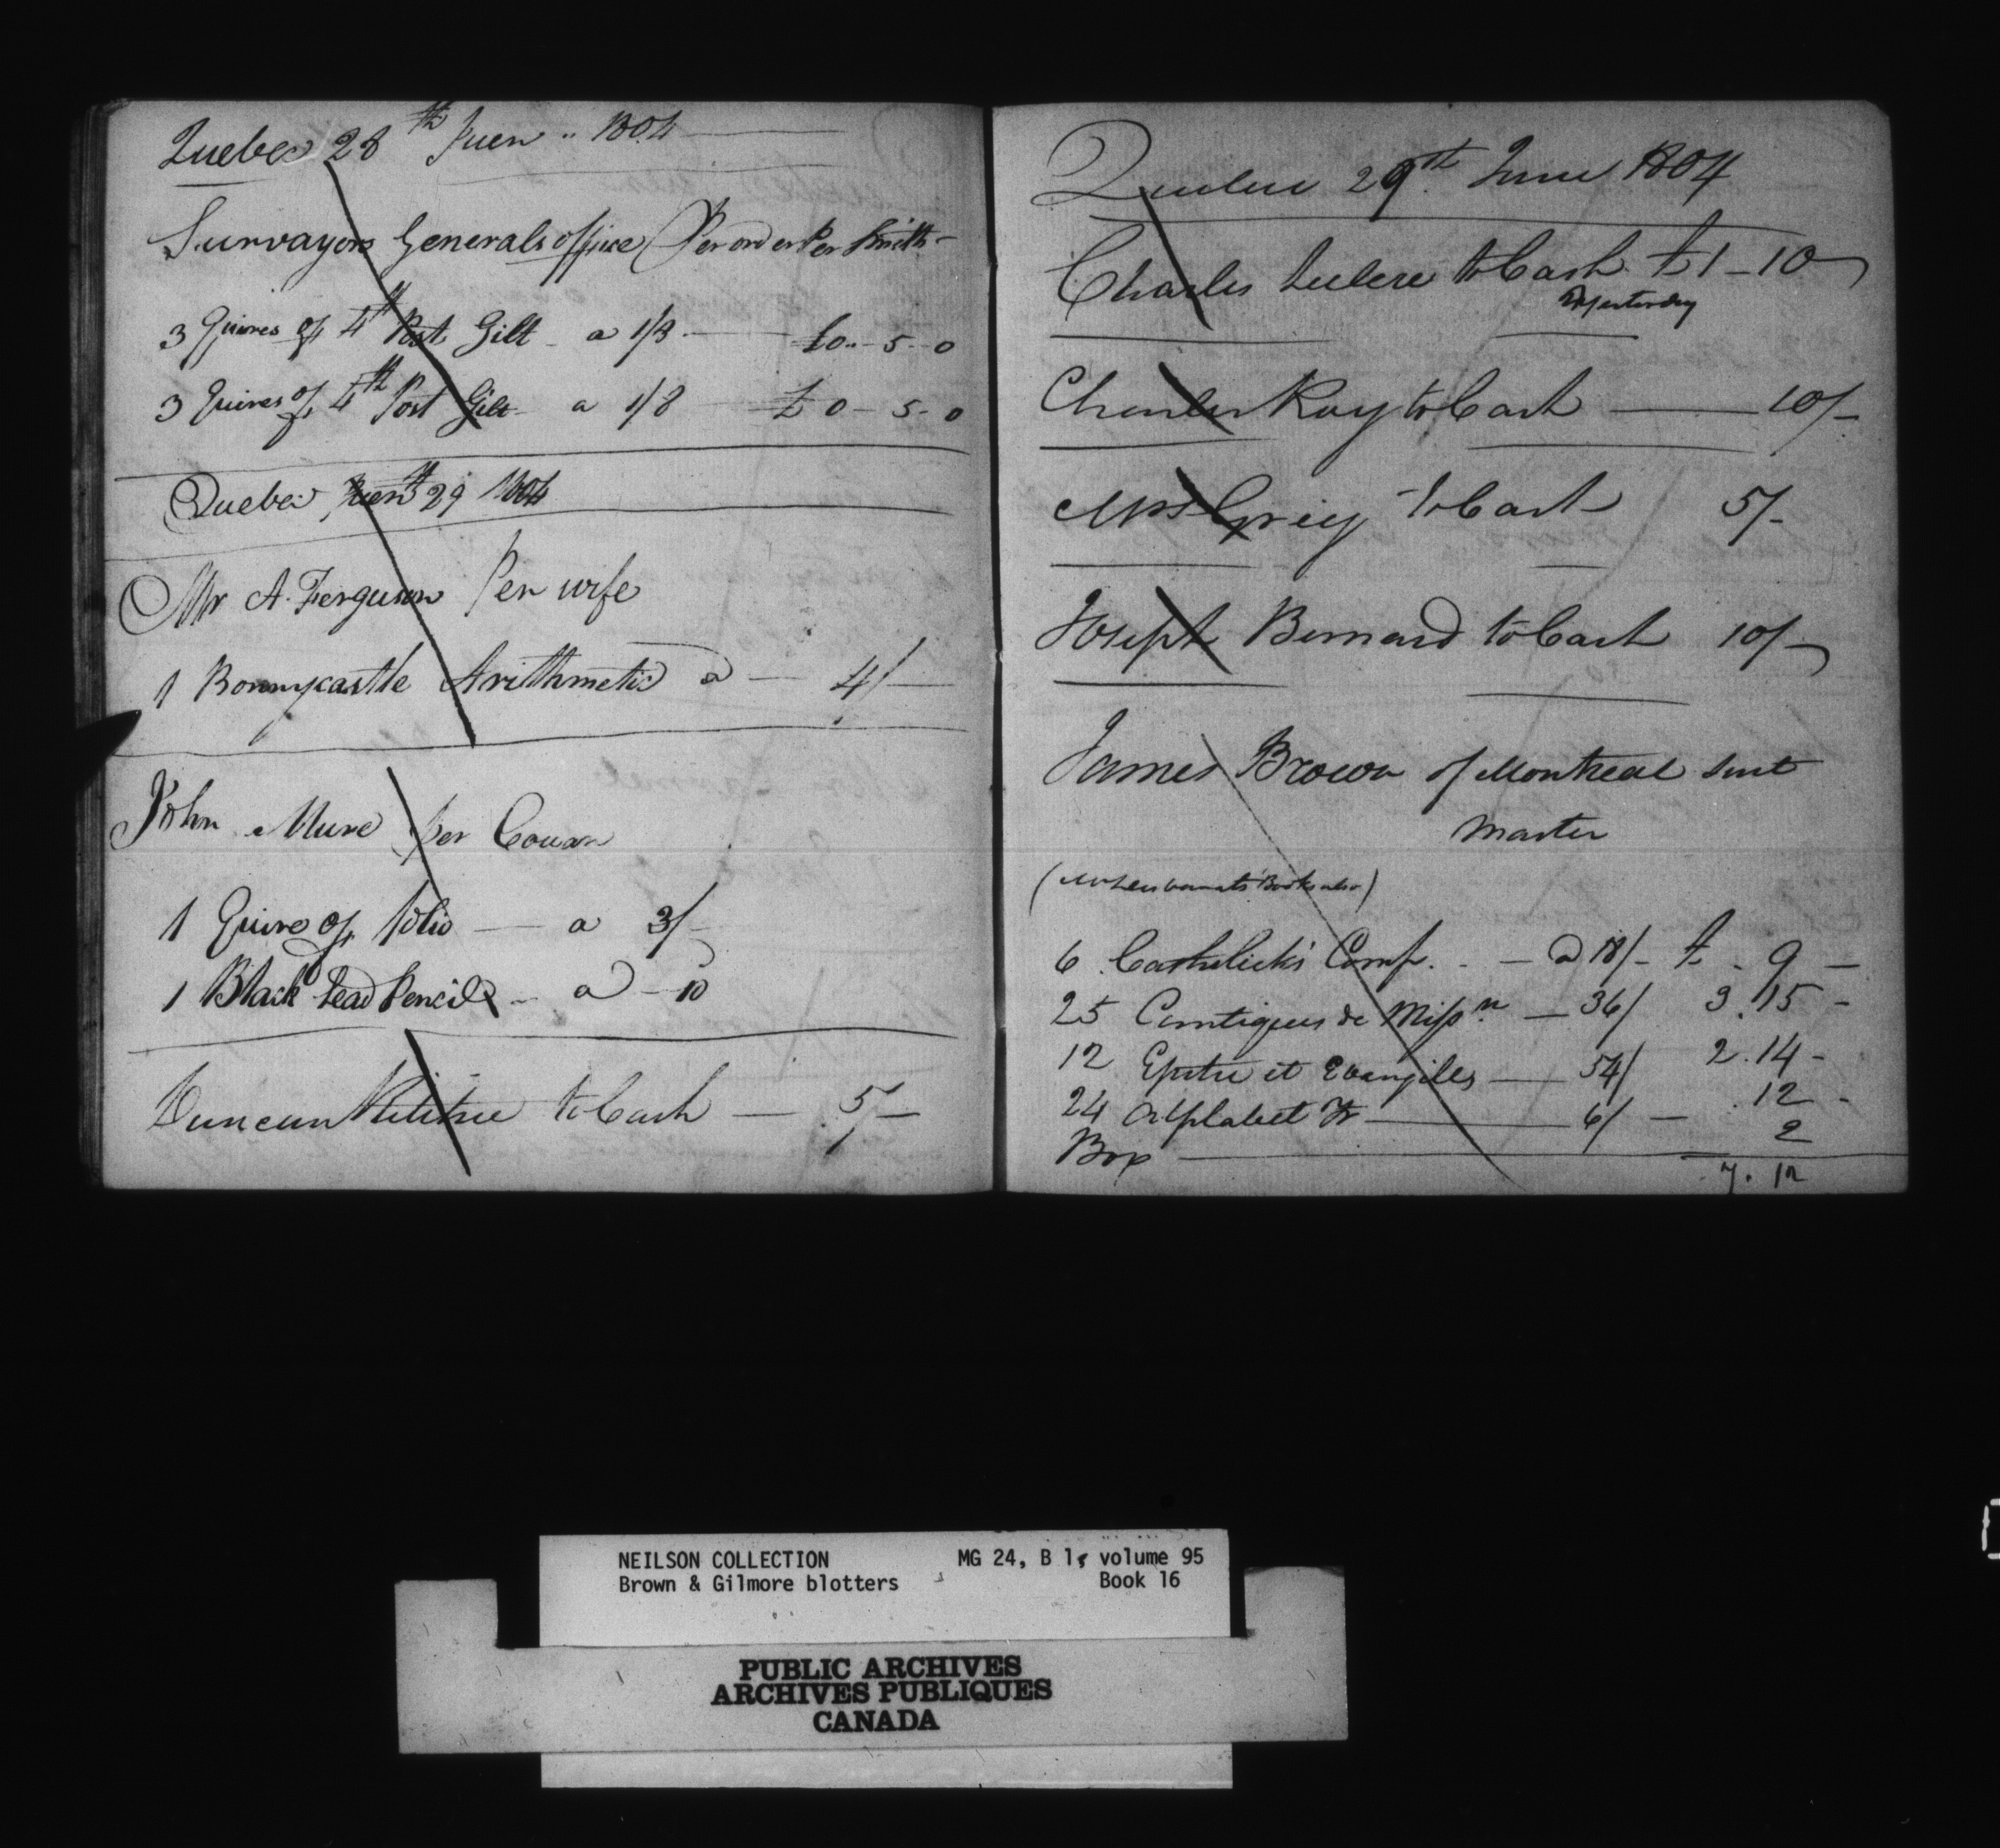 Quebec 28th Juen .. 1804
Survayors Generals office Per order Per Smith
3 Quires of 4th Post Gilt a 1/8 £0 - 5 - 0
3 Quires of 4th Post Gilt a 1/8 £ 0 - 5 - 0
Quebec Juen th 29 1804
Mr A. Ferguson Per wife
1 Bonnycastle Arithmetic a 4/
John Mure per Couan
1 Quire of folio a 3/
1 Black Lead Pencil a - 10
Duncan to Cash 5/
Quebec 29th June 1804
Charles Leclerc to Cash £1 - 10
Yesterday
Charles Roy to Cash 10/-
Mrs Grey to Cash 5/-
Joseph Bernard to Cash 10/-
James Brown of Montreal sent
Master
Books also)
6 Catholick's Comp. - a 18/- £ - 9 -
25 Cantiques de Missn. 36/ 3.15 -
12 Epitre et Evangiles 54/ 2.14 -
24 Alphabet Fr 6/ - .12 -
Box 2
7.12
NEILSON COLLECTION MG 24, B 1, volume 95
Brown & Gilmore blotters Book 16
PUBLIC ARCHIVES
ARCHIVES PUBLIQUES
CANADA